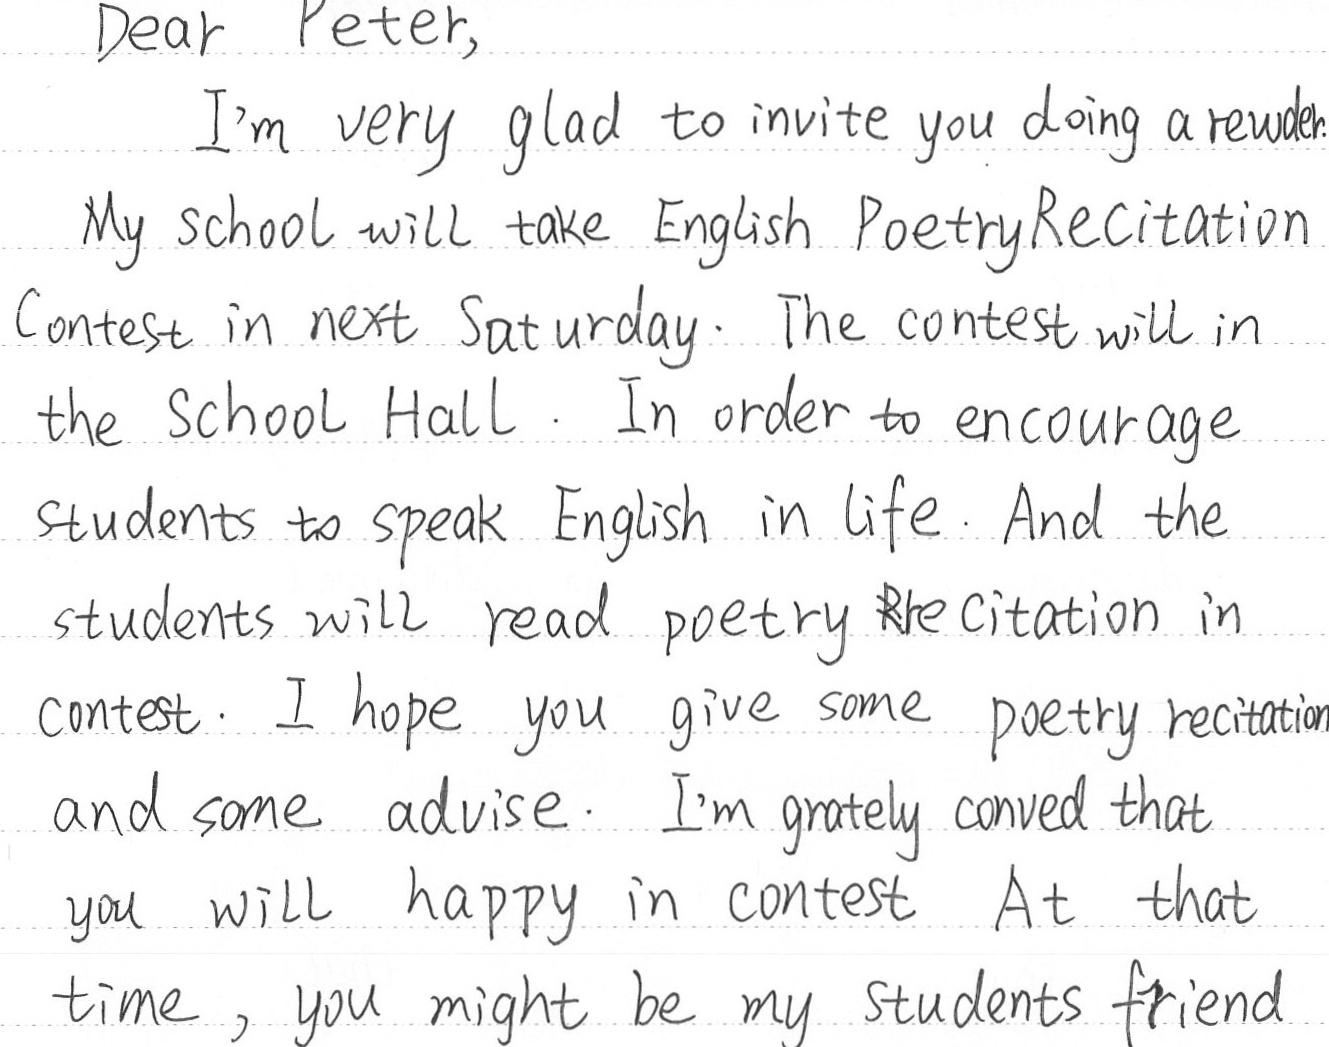 Dear Peter,
I'm very glad to invite you doing a rewder.
My school will take English Poetry Recitation
Contest in next Saturday. The contest will in
the School Hall. In order to encourage
students to speak English in life. And the
students will read poetry Recitation in
contest. I hope you give some poetry recitation
and some advise. I'm grately conved that
you will happy in contest At that
time, you might be my students friend